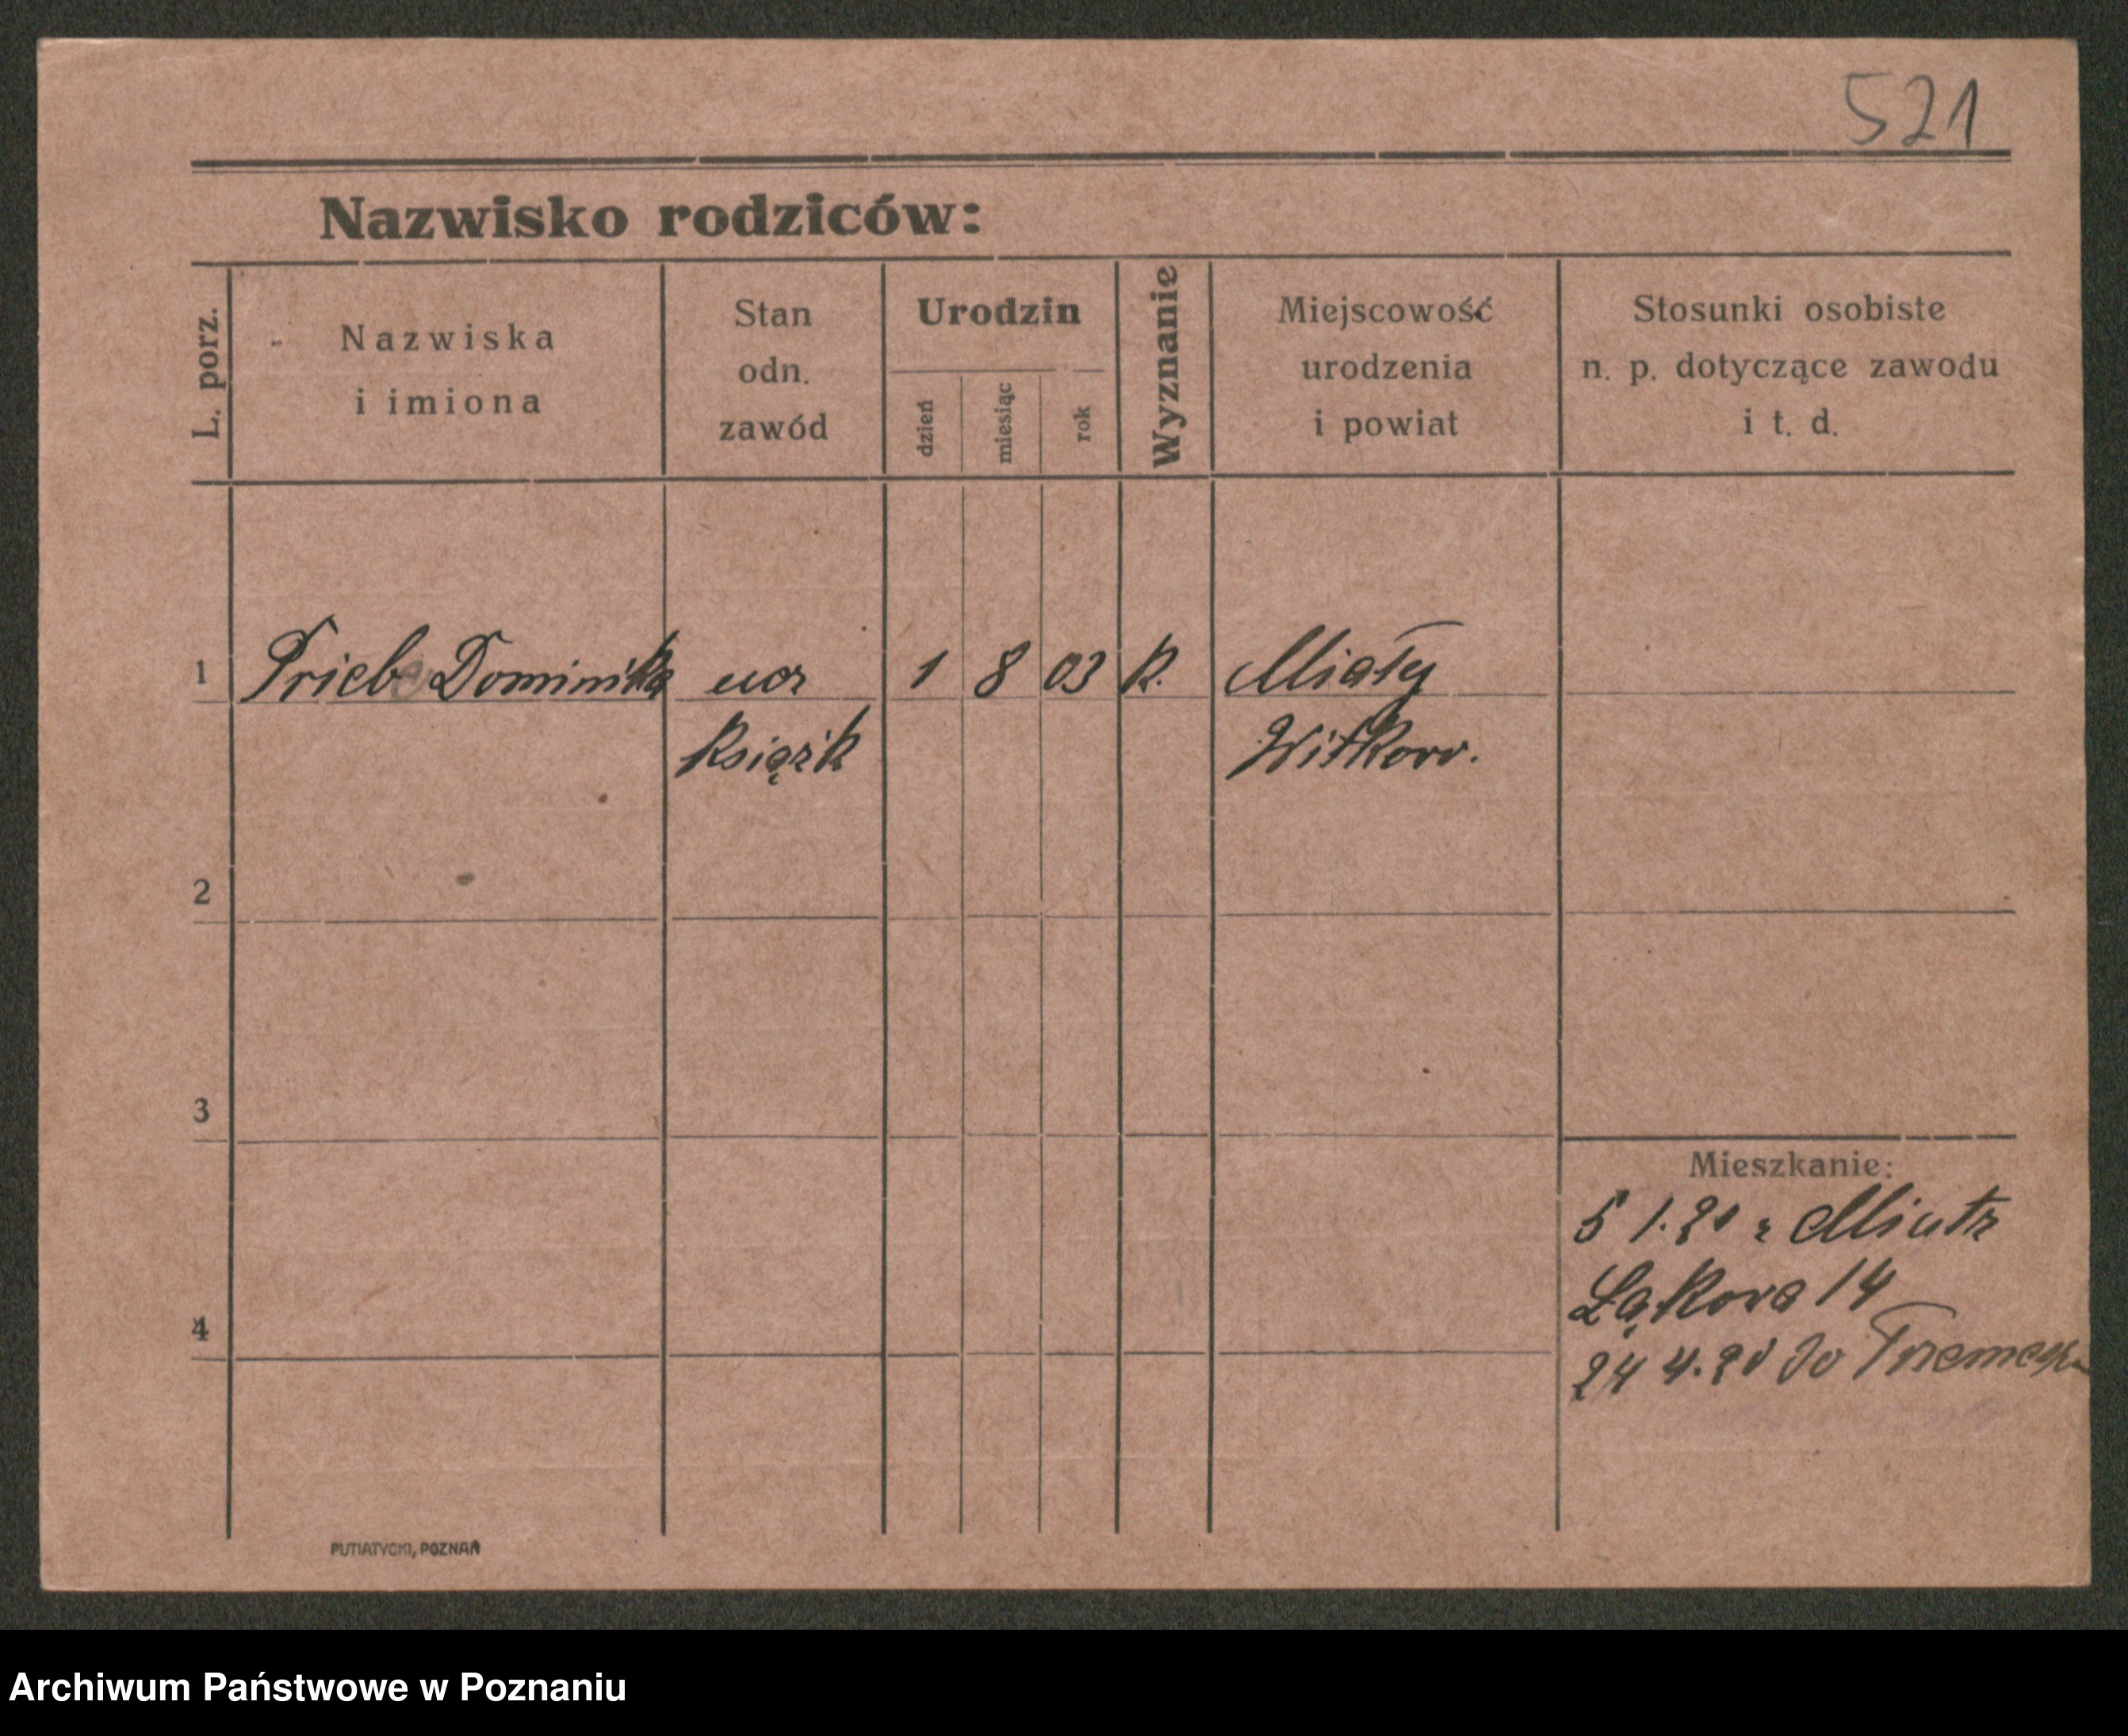 521
Nazwisko rodziców:
L. porz.
Nazwiska
i imiona
Stan
odn.
zawód
Urodzin
dzień
miesiąc
rok
Wyznanie
Miejscowość
urodzenia
i powiat
Stosunki osobiste
n. p. dotyczące zawodu
i t. d.
1 Priebe Dominika ucz 1 8 03 K. Miaty
Książk Witkow.
2
3
4
Mieszkanie:
5 1.21 z
Łąkova 14
24 4.21 do
PUTIATYCKI, POZNAŃ
Archiwum Państwowe w Poznaniu